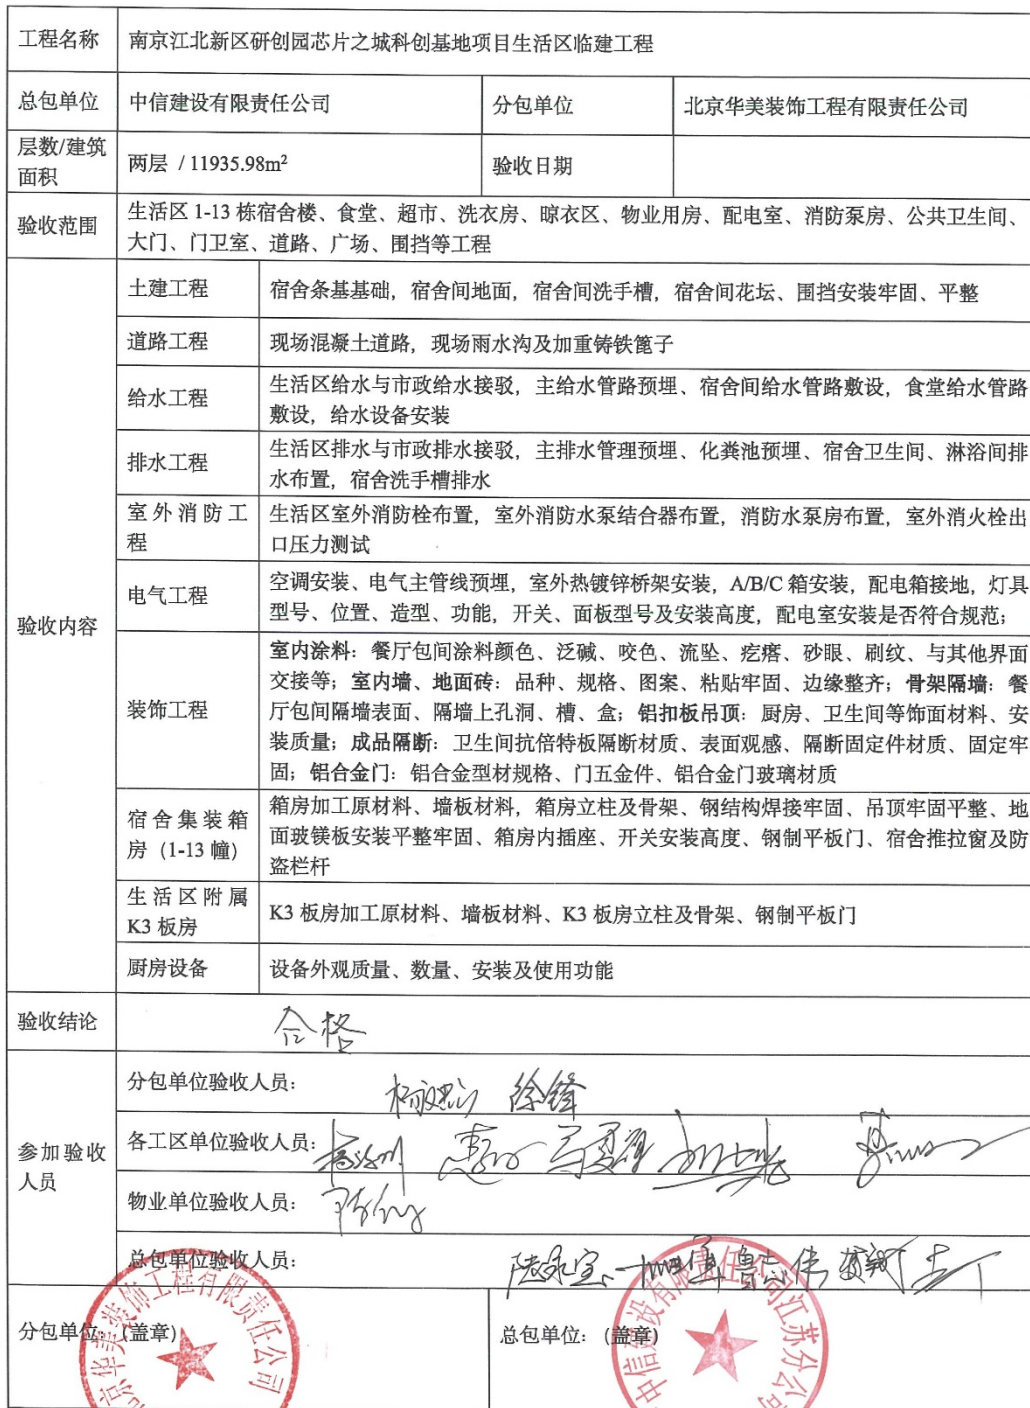 工程名称 南京江北新区研创园芯片之城科创基地项目生活区临建工程
总包单位 中信建设有限责任公司 分包单位 北京华美装饰工程有限责任公司
层数/建筑
面积 两层 / 11935.98m² 验收日期
验收范围 生活区 1-13 栋宿舍楼、食堂、超市、洗衣房、晾衣区、物业用房、配电室、消防泵房、公共卫生间、
大门、门卫室、道路、广场、围挡等工程
验收内容
土建工程 宿舍条基基础，宿舍间地面，宿舍间洗手槽，宿舍间花坛、围挡安装牢固、平整
道路工程 现场混凝土道路，现场雨水沟及加重铸铁篦子
给水工程 生活区给水与市政给水接驳，主给水管路预埋、宿舍间给水管路敷设，食堂给水管路
敷设，给水设备安装
排水工程 生活区排水与市政排水接驳，主排水管理预埋、化粪池预埋、宿舍卫生间、淋浴间排
水布置，宿舍洗手槽排水
室外消防工
程 生活区室外消防栓布置，室外消防水泵结合器布置，消防水泵房布置，室外消火栓出
口压力测试
电气工程 空调安装、电气主管线预埋，室外热镀锌桥架安装，A/B/C 箱安装，配电箱接地，灯具
型号、位置、造型、功能，开关、面板型号及安装高度，配电室安装是否符合规范；
装饰工程 室内涂料：餐厅包间涂料颜色、泛碱、咬色、流坠、疙瘩、砂眼、刷纹、与其他界面
交接等；室内墙、地面砖：品种、规格、图案、粘贴牢固、边缘整齐；骨架隔墙：餐
厅包间隔墙表面、隔墙上孔洞、槽、盒；铝扣板吊顶：厨房、卫生间等饰面材料、安
装质量；成品隔断：卫生间抗倍特板隔断材质、表面观感、隔断固定件材质、固定牢
固；铝合金门：铝合金型材规格、门五金件、铝合金门玻璃材质
宿舍集装箱
房（1-13 幢） 箱房加工原材料、墙板材料，箱房立柱及骨架、钢结构焊接牢固、吊顶牢固平整、地
面玻镁板安装平整牢固、箱房内插座、开关安装高度、钢制平板门、宿舍推拉窗及防
盗栏杆
生活区附属
K3 板房 K3 板房加工原材料、墙板材料、K3 板房立柱及骨架、钢制平板门
厨房设备 设备外观质量、数量、安装及使用功能
验收结论 合格
参加验收
人员
分包单位验收人员： 徐锋
各工区单位验收人员：
物业单位验收人员：
总包单位验收人员： 鲁志伟
分包单位：（盖章） 总包单位：（盖章）
京华美装饰工程有限责任公司
中信建设有限责任公司江苏分公司